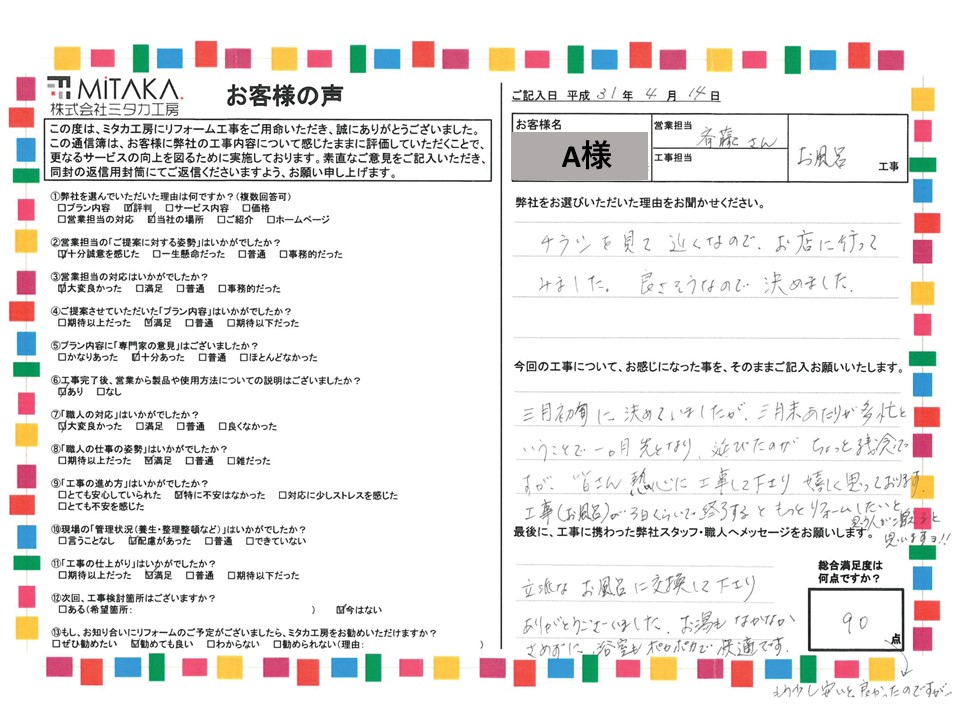 MiTAKA
株式会社ミタカ工房
お客様の声
この度は、ミタカ工房にリフォーム工事をご用命いただき、誠にありがとうございました。
この通信簿は、お客様に弊社の工事内容について感じたままに評価していただくことで、
更なるサービスの向上を図るために実施しております。素直なご意見をご記入いただき、
同封の返信用封筒にてご返信くださいますよう、お願い申し上げます。
①弊社を選んでいただいた理由は何ですか?(複数回答可)
□プラン内容 ☑評判 □サービス内容 □価格
□営業担当の対応 ☑当社の場所 □ご紹介 □ホームページ
②営業担当の「ご提案に対する姿勢」はいかがでしたか?
☑十分誠意を感じた □一生懸命だった □普通 □事務的だった
③営業担当の対応はいかがでしたか?
☑大変良かった □満足 □普通 □事務的だった
④ご提案させていただいた「プラン内容」はいかがでしたか?
□期待以上だった ☑満足 □普通 □期待以下だった
⑤プラン内容に「専門家の意見」はございましたか?
□かなりあった ☑十分あった □普通 □ほとんどなかった
⑥工事完了後、営業から製品や使用方法についての説明はございましたか?
☑あり □なし
⑦「職人の対応」はいかがでしたか?
☑大変良かった □満足 □普通 □良くなかった
⑧「職人の仕事の姿勢」はいかがでしたか?
□期待以上だった ☑満足 □普通 □雑だった
⑨「工事の進め方」はいかがでしたか?
□とても安心していられた ☑特に不安はなかった □対応に少しストレスを感じた
□とても不安を感じた
⑩現場の「管理状況(養生・整理整頓など)」はいかがでしたか?
□言うことなし ☑配慮があった □普通 □できていない
⑪「工事の仕上がり」はいかがでしたか?
□期待以上だった ☑満足 □普通 □期待以下だった
⑫次回、工事検討箇所はございますか?
□ある(希望箇所: ) ☑今はない
⑬もし、お知り合いにリフォームのご予定がございましたら、ミタカ工房をお勧めいただけますか?
□ぜひ勧めたい ☑勧めても良い □わからない □勧められない(理由: )
ご記入日 平成 31 年 4 月 14 日
お客様名
A様
営業担当 斉藤さん
工事担当
お風呂 工事
弊社をお選びいただいた理由をお聞かせください。
チラシを見て 近くなので、お店に行って
みました。 良さそうなので 決めました。
今回の工事について、お感じになった事を、そのままご記入お願いいたします。
三月初旬に決めていましたが、三月末あたりが多忙と
いうことで一ヶ月先となり、延びたのが ちょっと残念で
すが、皆さん 熱心に工事して下さり 嬉しく思っております。
工事(お風呂)が3日くらいで終了すると もっとリフォームしたいと
思う人がご散ると
思いますヨ!!
最後に、工事に携わった弊社スタッフ・職人へメッセージをお願いします。
立派な お風呂に交換して下さり
ありがとうございました。お湯も なかなか
さめずに、浴室もポカポカで 快適です。
総合満足度は
何点ですか?
90
点
もう少し安いと良かったのですが…